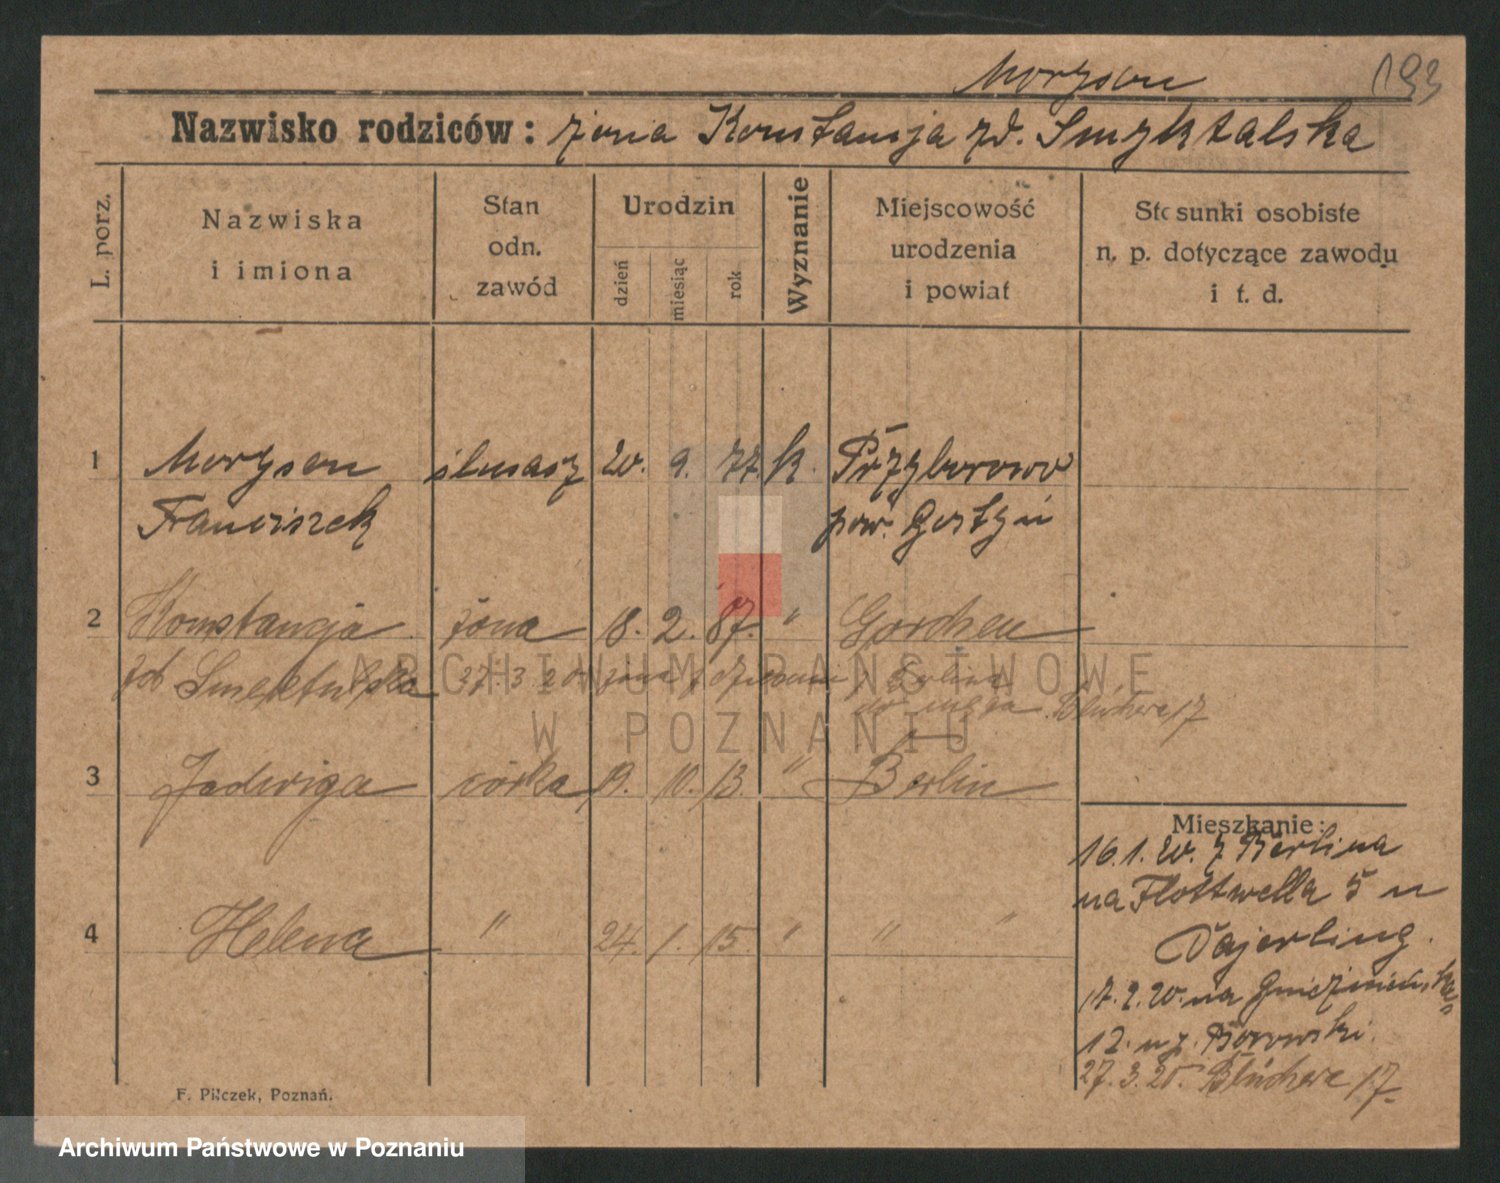 Moryson 193
Nazwisko rodziców: żona Konstancja zd. Smyktalska
L. porz.
Nazwiska
i imiona
Stan
odn.
zawód
Urodzin
dzień
miesiąc
rok
Wyznanie
Miejscowość
urodzenia
i powiat
Stosunki osobiste
n. p. dotyczące zawodu
i t. d.
1 Moryson ślusarz 20. 9. 77. k. Przyborowo
Franciszek pow. Gostyń
2 Konstancja żona 18. 2. 87. " Gorchen
zd 27. 3 20 żona z Berlina
do męża Blüchera 17
3 Jadwiga córka 19. 10. 13. " Berlin
4 Helena " 24. 1. 15. " " "
Mieszkanie:
16.1.20. z Berlina
na Flottwella 5 u
Bajerling.
17.2.20. na Gnieźnieńska
12. u Borowski.
27.3.20. Blüchera 17.
F. Pilczek, Poznań.
ARCHIWUM PAŃSTWOWE
W POZNANIU
Archiwum Państwowe w Poznaniu